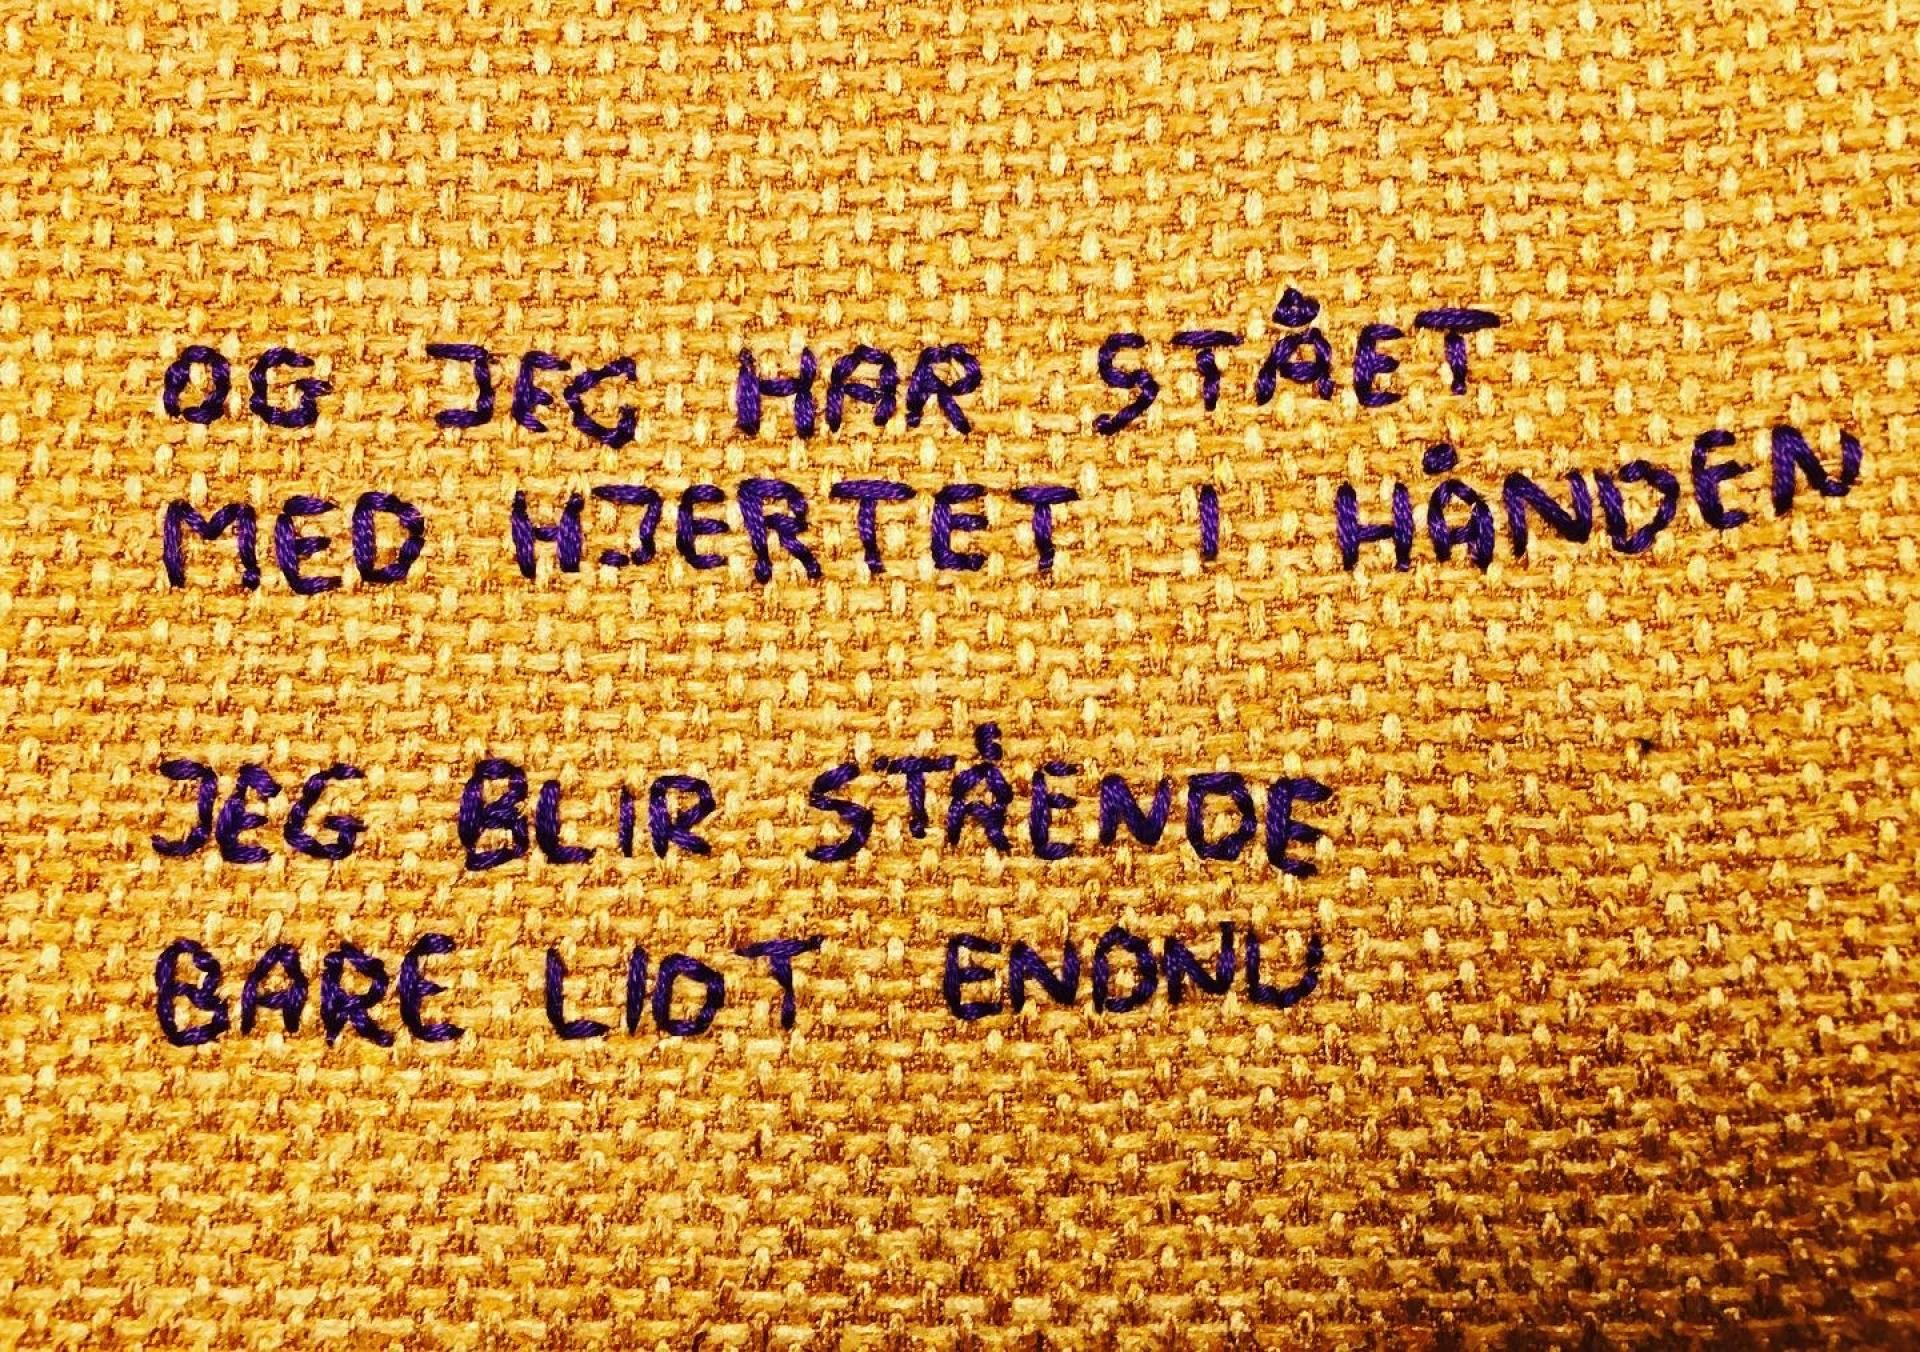 OG JEG HAR STÅET
MED HJERTET I HÅNDEN
JEG BLIR STÅENDE
BARE LIDT ENDNU